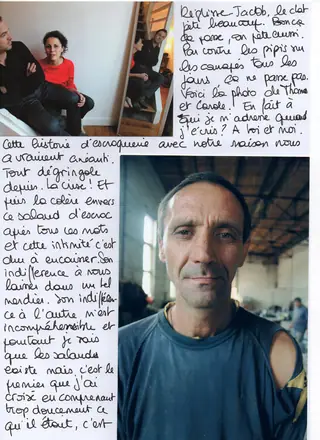 Re plusse Jacob, le clot
pète beaucoup. Bon ça
de passe, on pète aussi.
Par contre les pipis sur
les canapés tous les
jours. ça ne passe pas.
Voici la photo de Thom
et Carole! En fait à
qui je m'adresse quand
j'écris? A toi et moi.
Cette histoire d'escroquerie avec notre maison nous
a vraiment anéanti.
Tout dégringole
depuis. La Cisc! Et
puis la colère envers
ce salaud d'escroc
après tous ces mots
et cette intimité c'est
dur à encaisser. Son
indifférence à nous
laisser dans un tel
merdier. Son indifféren-
ce à l'autre m'est
incompréhensible et
pourtant je sais
que les salauds
existe mais c'est le
premier que j'ai
croisé en comprenant
trop doucement ce
qu'il étant, c'est